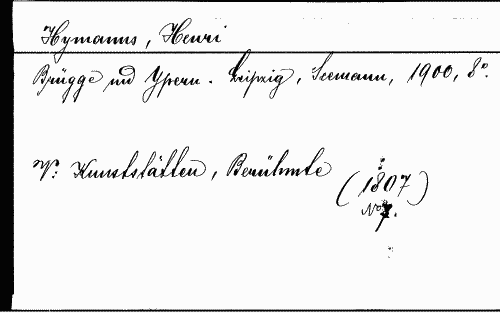 Hymanns, Henri
Brügge und Ypern. Leipzig, Seemann, 1900, 8°.
V: Kunststätten, Berühmte
(1807)
No 7.